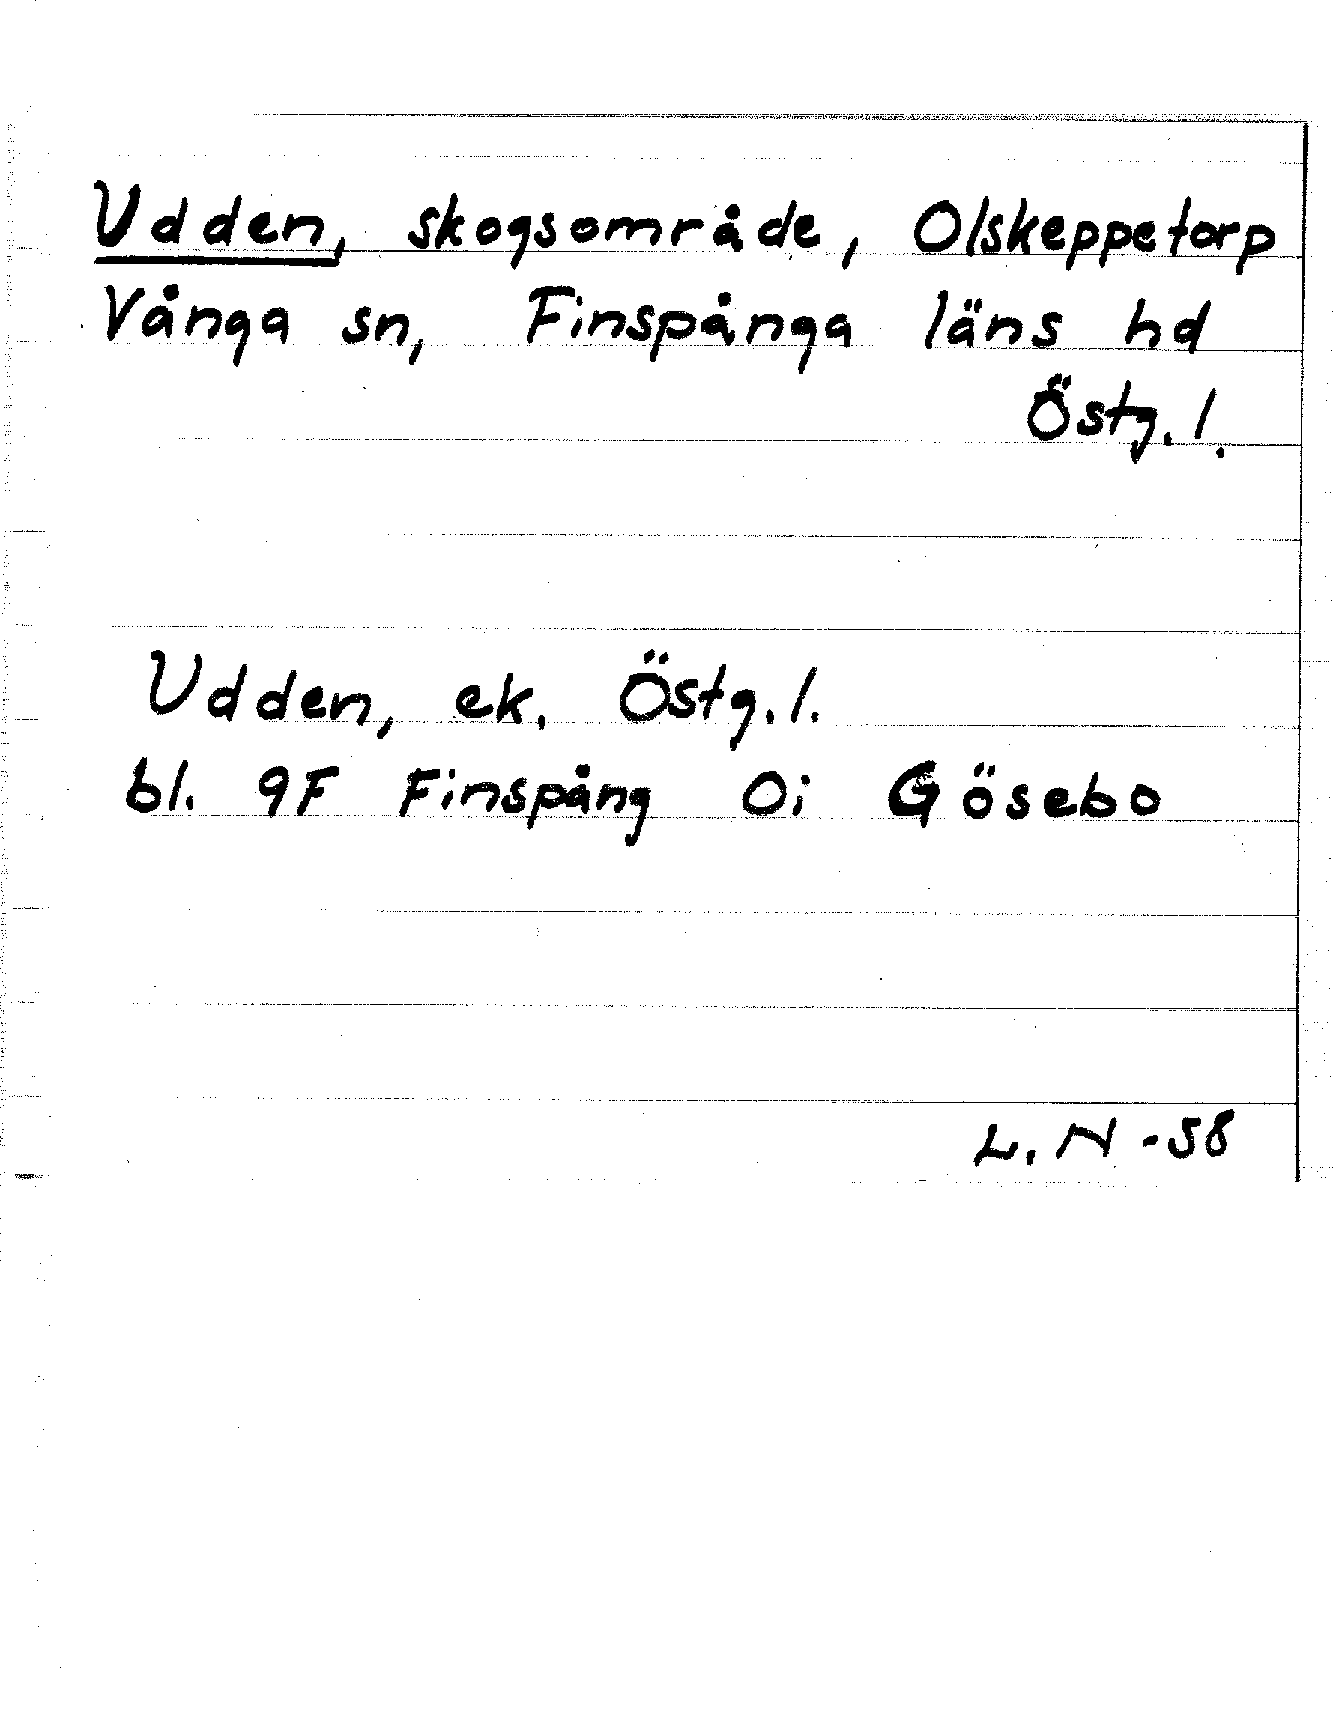 Udden, skogsområde, Olskeppetorp
Vånga sn, Finspånga läns hd
Östg. l.
Udden, ek. Östg. l.
bl. 9F Finspång 0i Gösebo
L. N -58